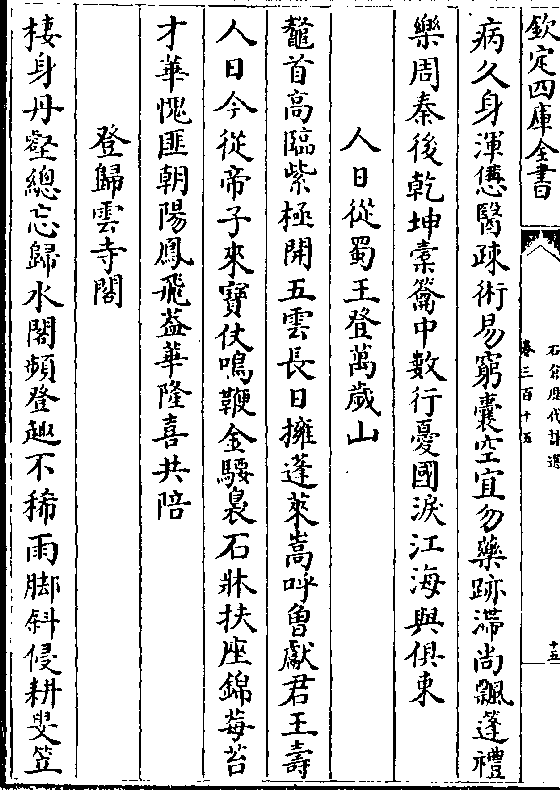 欽定四庫全書
石倉歴代詩選
卷三百十五
十五
病久身渾憊醫疎術易窮囊空宜勿藥跡滯尚飄蓬禮
樂周秦後乾坤橐籥中數行憂國淚江海與俱東
人日從蜀王登萬歲山
鼇首高臨紫極開五雲長日擁蓬萊嵩呼曾獻君王壽
人日今從帝子來寶仗鳴鞭金騕褭石牀扶座錦莓苔
才華愧匪朝陽鳳飛葢華隆喜共陪
登歸雲寺閣
棲身丹壑總忘歸水閣頻登趣不稀雨脚斜侵耕叟笠